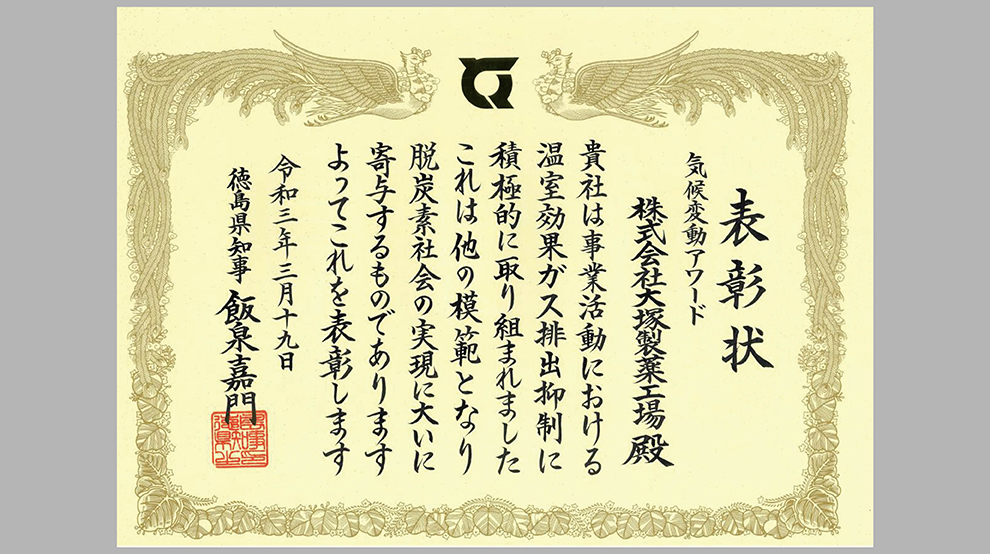 表彰状
気候変動アワード
株式会社大塚製薬工場 殿
貴社は事業活動における
温室効果ガス排出抑制に
積極的に取り組まれました
これは他の模範となり
脱炭素社会の実現に大いに
寄与するものであります
よってこれを表彰します
令和三年三月十九日
徳島県知事 飯泉嘉門